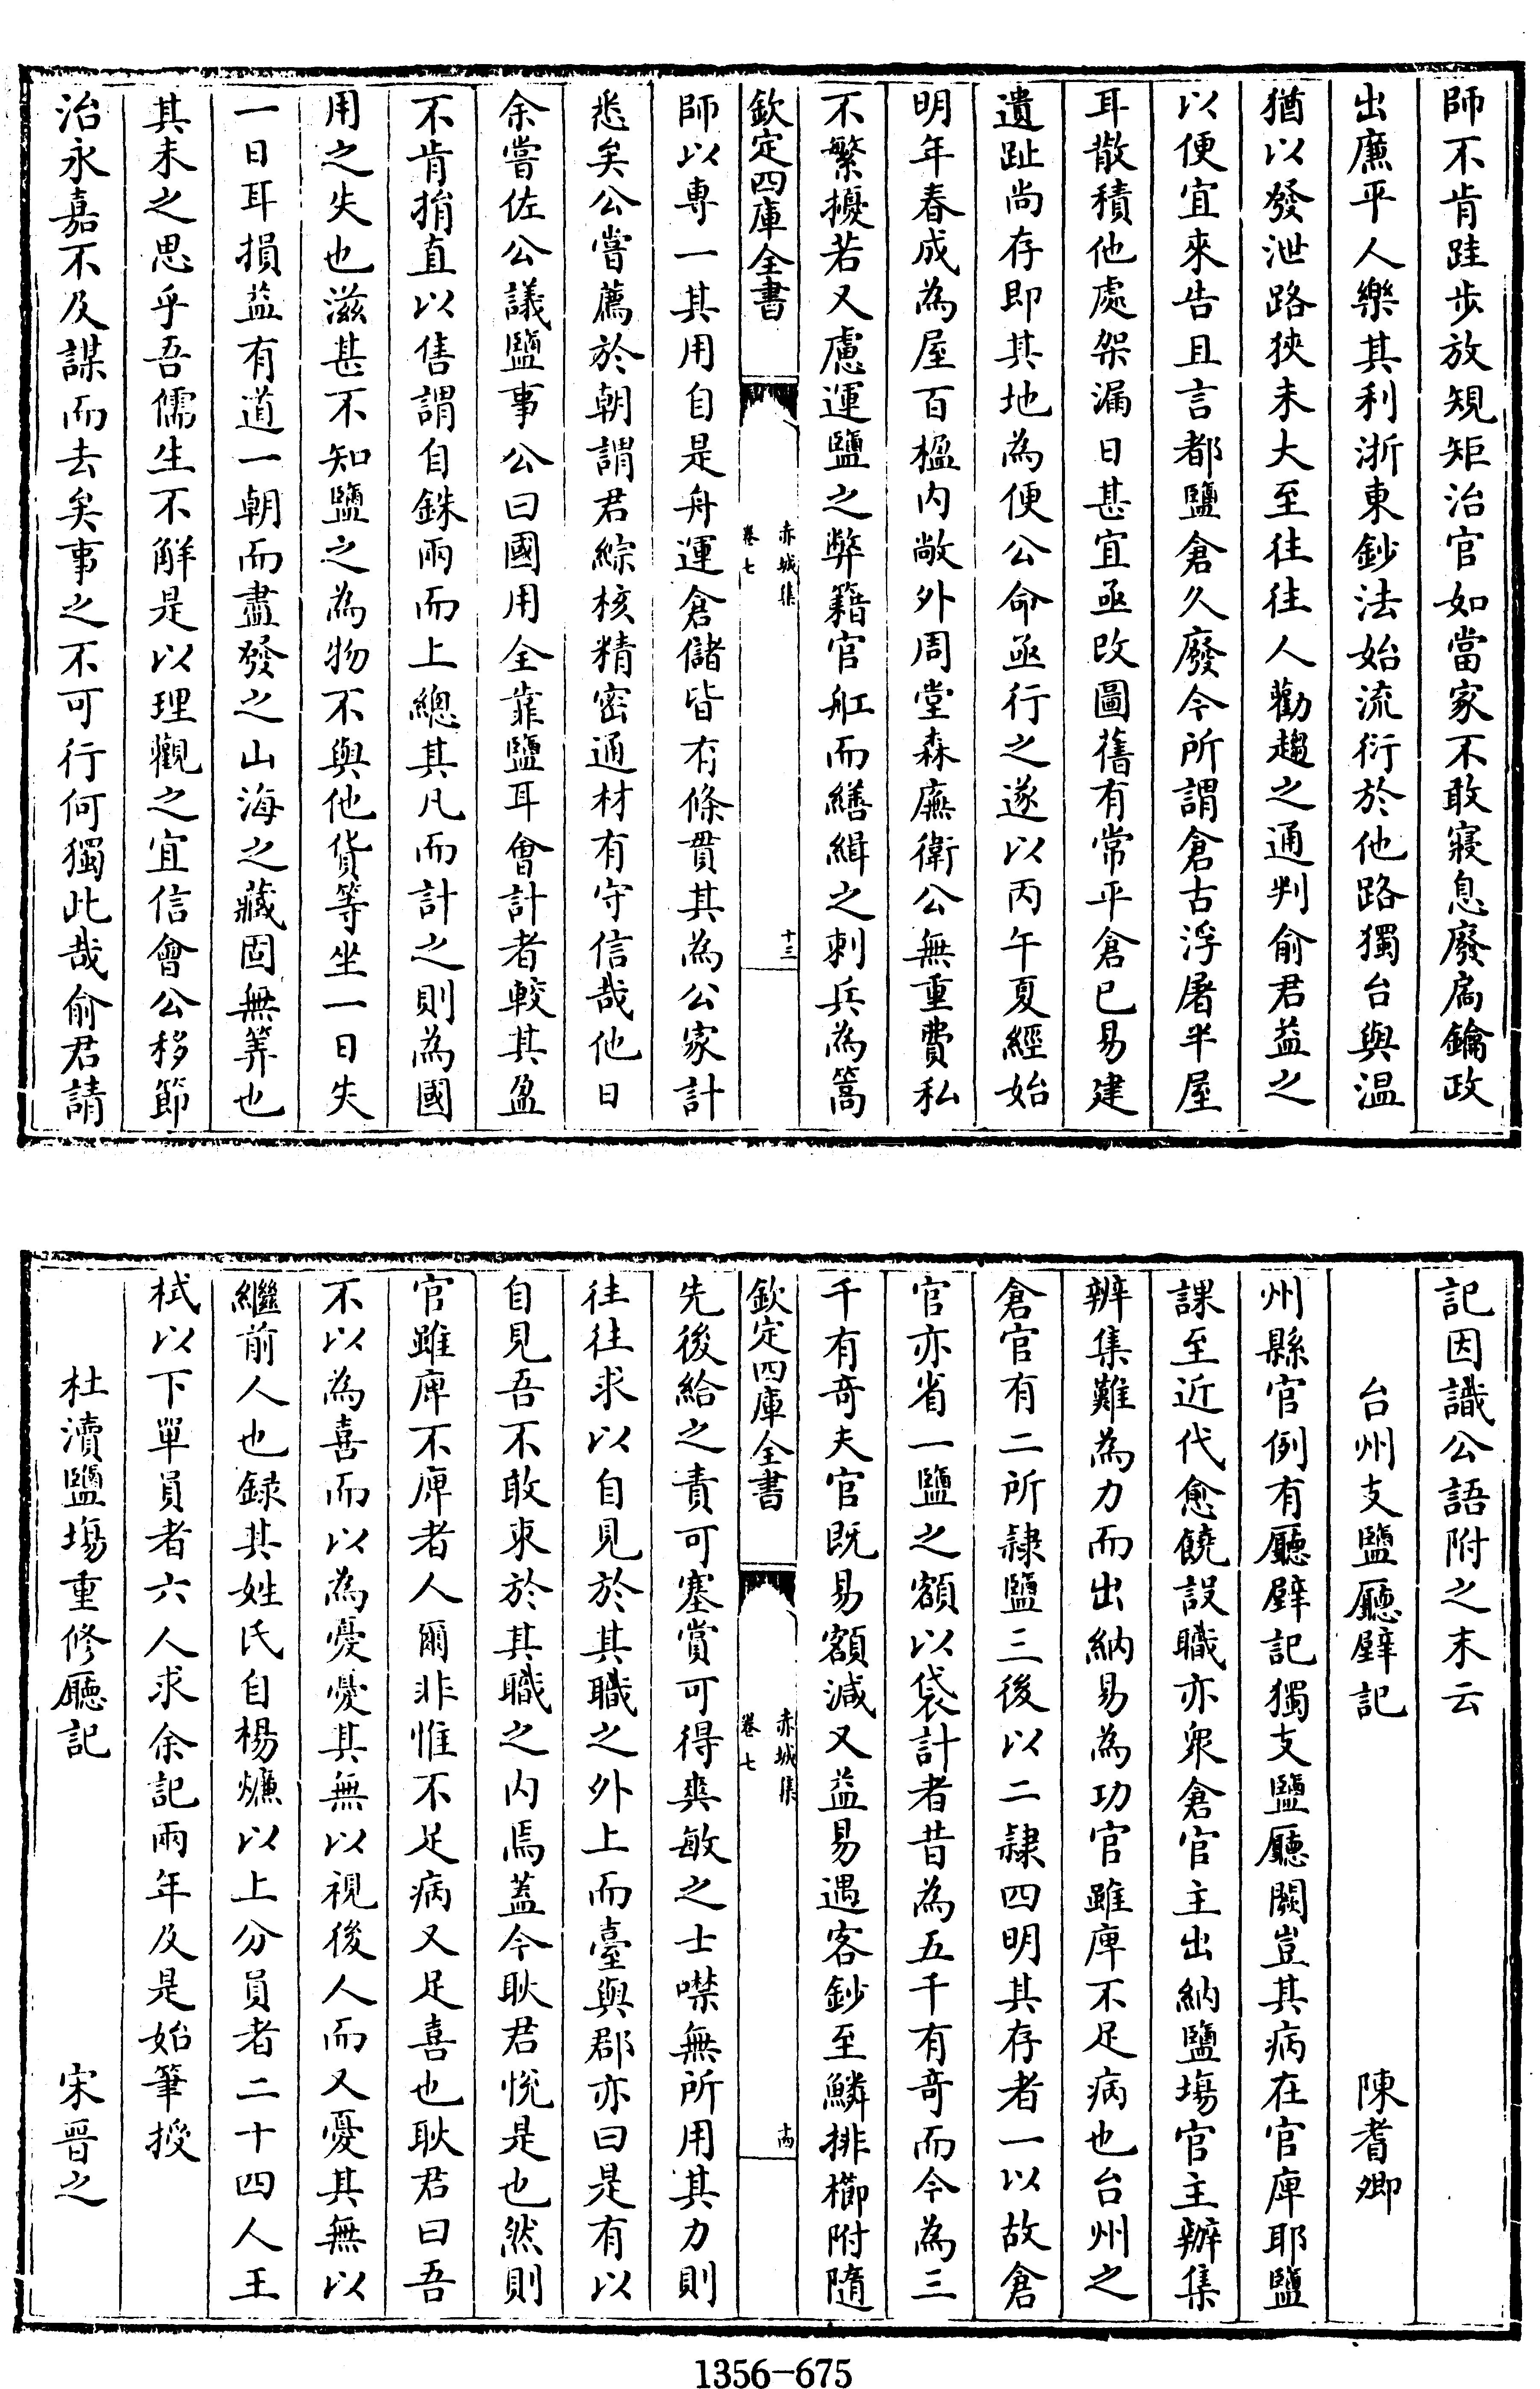 師不肯跬步放規矩治官如當家不敢寢息廢扄鑰政
出廉平人樂其利浙東鈔法始流衍於他路獨台與温
猶以發泄路狹未大至往往人勸趨之通判俞君益之
以便宜來告且言都鹽倉久廢今所謂倉古浮屠半屋
耳散積他處架漏日甚宜亟改圖舊有常平倉已易建
遺趾尚存即其地為便公命亟行之遂以丙午夏經始
明年春成為屋百楹内敞外周堂森廡衛公無重費私
不繁擾若又慮運鹽之弊籍官舡而繕緝之刺兵為篙
欽定四庫全書
赤城集
卷七
十三
師以專一其用自是舟運倉儲皆有條貫其為公家計
悉矣公嘗薦於朝謂君綜核精密通材有守信哉他日
余嘗佐公議鹽事公曰國用全靠鹽耳會計者較其盈
不肯捐直以售謂自銖兩而上總其凡而計之則為國
用之失也滋甚不知鹽之為物不與他貨等坐一日失
一日耳損益有道一朝而盡發之山海之藏固無筭也
其未之思乎吾儒生不解是以理觀之宜信會公移節
治永嘉不及謀而去矣事之不可行何獨此哉俞君請
記因識公語附之末云
台州支鹽廳壁記　陳耆卿
州縣官例有廳壁記獨支鹽廳闕豈其病在官庳耶鹽
課至近代愈饒設職亦衆倉官主出納鹽塲官主辦集
辦集難為力而出納易為功官雖庳不足病也台州之
倉官有二所隷鹽三後以二隷四明其存者一以故倉
官亦省一鹽之額以袋計者昔為五千有奇而今為三
千有奇夫官既易額減又益易遇客鈔至鱗排櫛附隨
欽定四庫全書
赤城集
卷七
十四
先後給之責可塞賞可得爽敏之士噤無所用其力則
往往求以自見於其職之外上而臺與郡亦曰是有以
自見吾不敢束於其職之内焉蓋今耿君悅是也然則
官雖庳不庳者人爾非惟不足病又足喜也耿君曰吾
不以為喜而以為憂憂其無以視後人而又憂其無以
繼前人也録其姓氏自楊㷿以上分員者二十四人王
栻以下單員者六人求余記兩年及是始筆授
杜瀆鹽塲重修廳記　宋晉之
1356-675